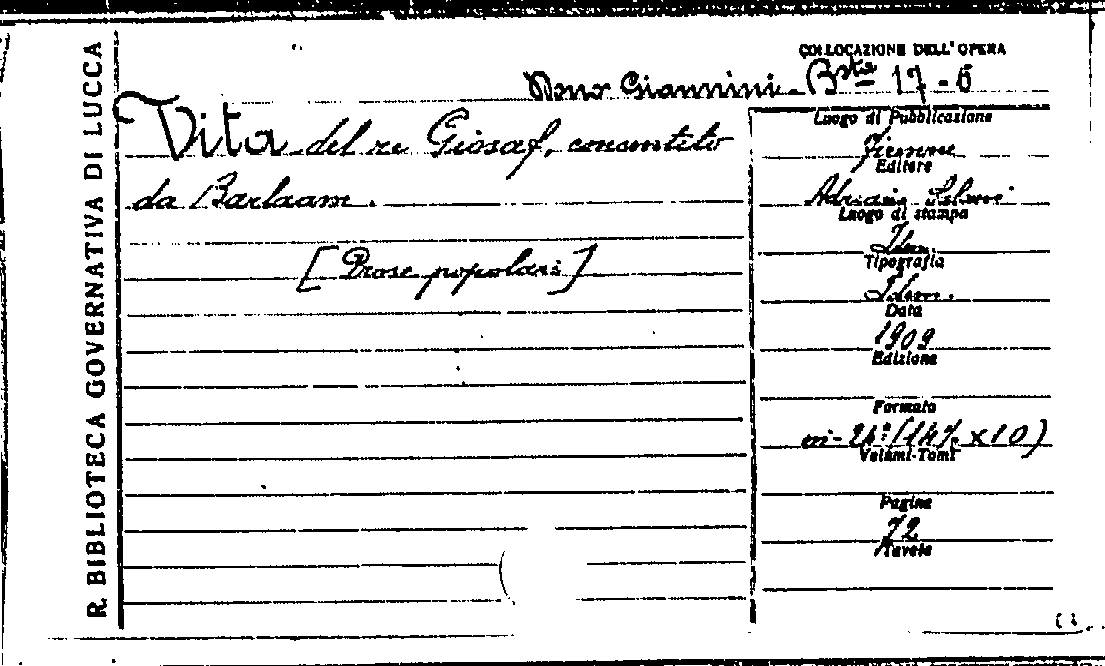 R. BIBLIOTECA GOVERNATIVA DI LUCCA
COLLOCAZIONE DELL'OPERA
Dono Giannini - Bsta 17-6
Vita del re Giosaf, convertito
da Barlaam.
[Prose popolari]
Luogo di Pubblicazione
Firenze
Editore
Adriano Salani
Luogo di stampa
Idem.
Tipografia
Idem.
Data
1909
Edizione
Formato
in-24º (14½ x 10)
Volumi-Tomi
Pagine
72
Tavole